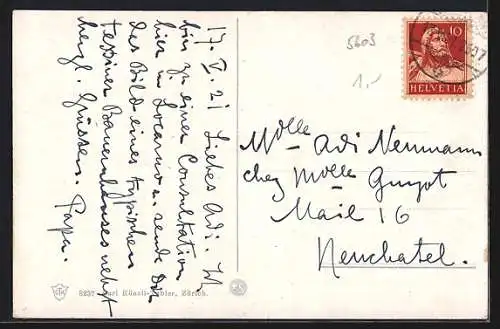 17. V. 21 Liebes Adi. Ich
bin zu einer Consultation
hier in Locarno u. sende Dir
das Bild eines typischen
Tessiner Bauernhauses nebst
herzl. Grüssen. Papa.
5603
1,-
10
HELVETIA
Molle Adi Neumann
chez Molle Guyot
Mail 16
Neuchatel.
8257 Carl Künzli-Tobler, Zürich.